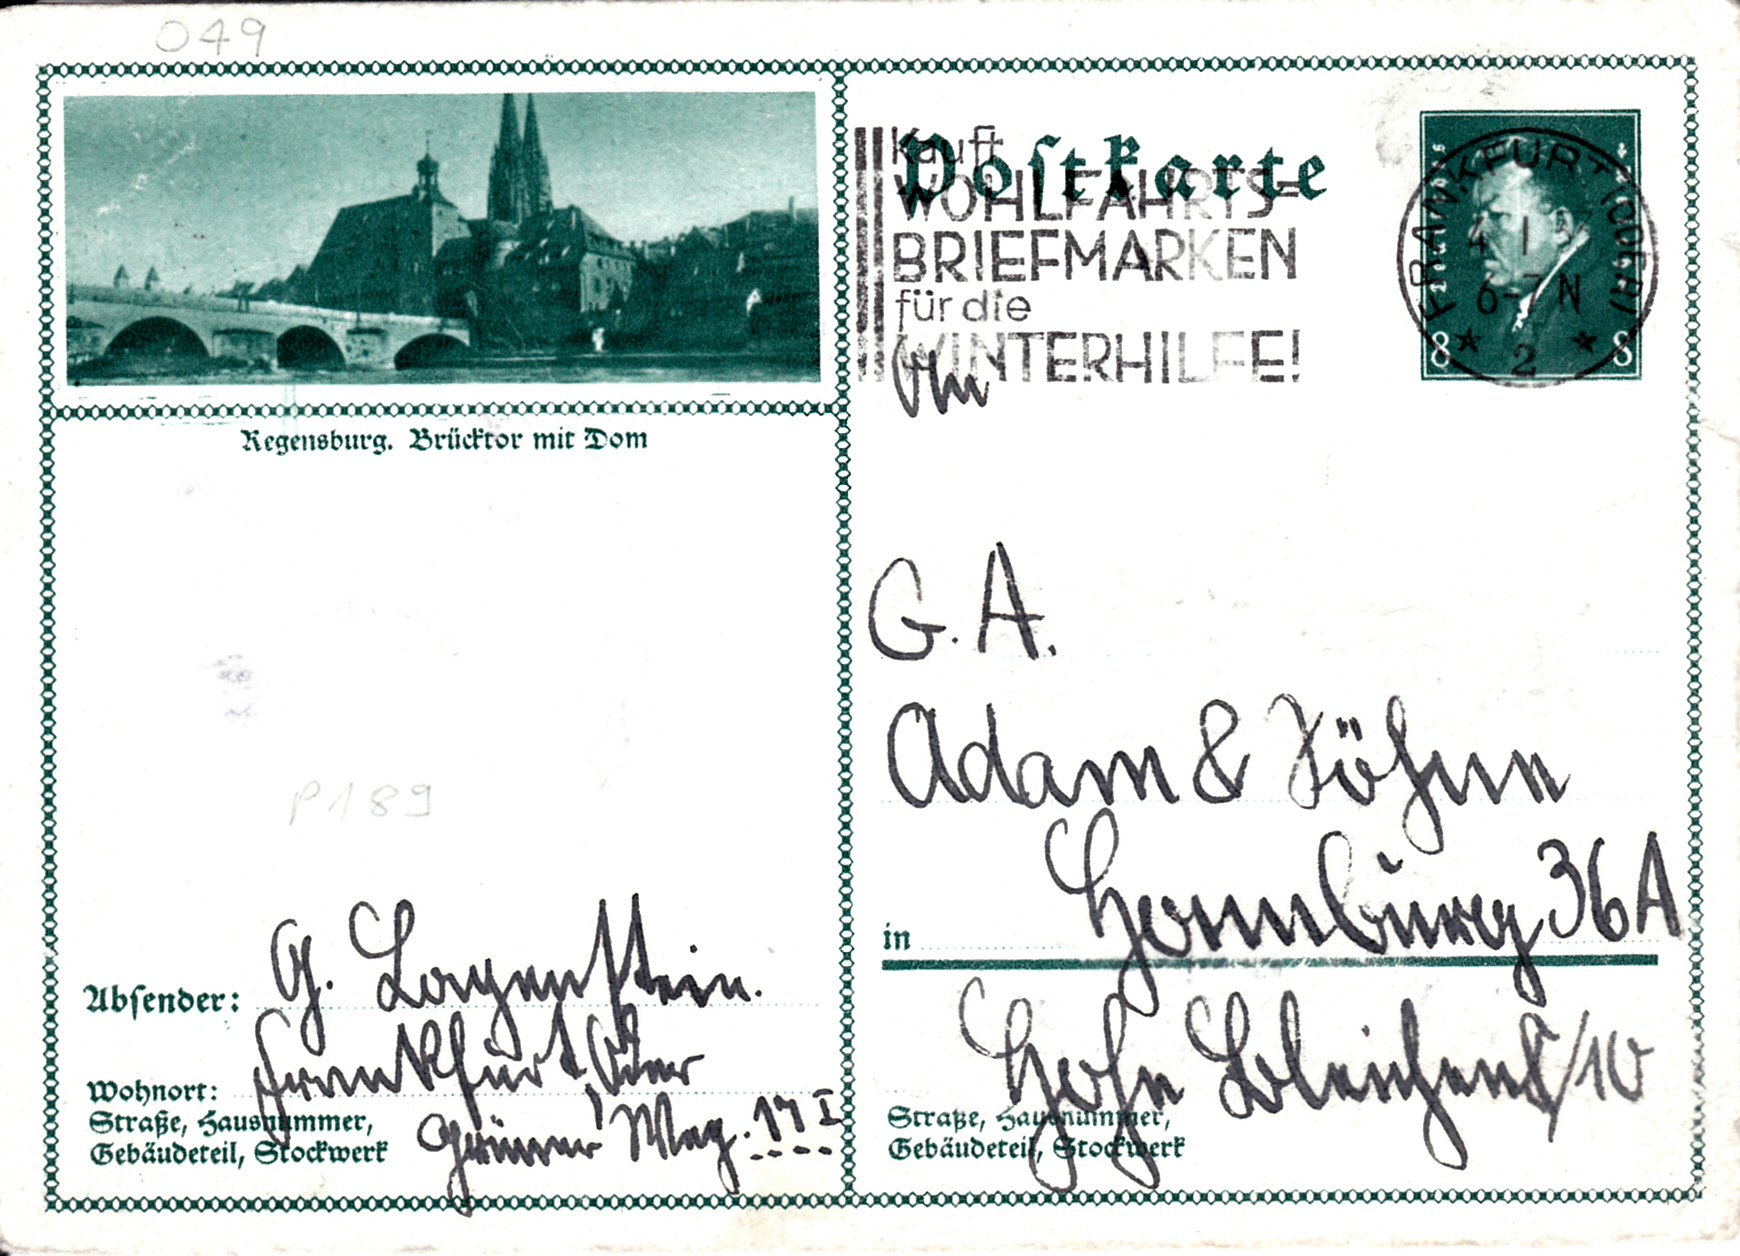 049
Regensburg. Brücktor mit Dom
P189
Absender: G. Lagenstein.
Wohnort: Frankfurt Oder
Straße, Hausnummer,
Gebäudeteil, Stockwerk
Grüner Weg. 17 I
Postkarte
Kauft
WOHLFAHRTS=
BRIEFMARKEN
für die
WINTERHILFE!
Deutsches Reich
8 8
FRANKFURT (ODER)
4 1
6-7 N
2
An
G. A.
Adam & Söhne
in Hamburg 36 A
Hohe Bleichen 8/10
Straße, Hausnummer,
Gebäudeteil, Stockwerk